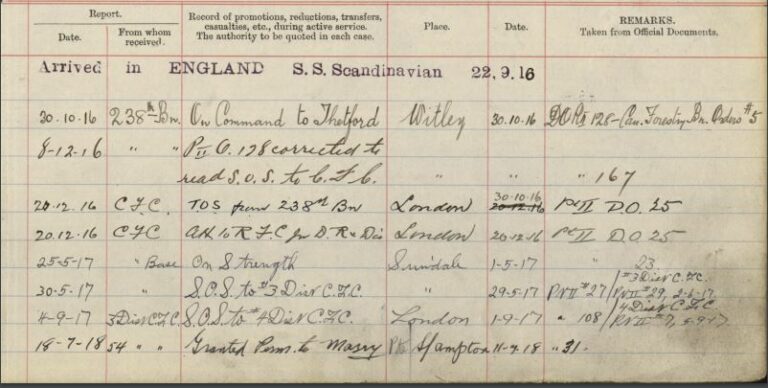 Report. Record of promotions, reductions, transfers, casualties, etc., during active service. The authority to be quoted in each case. Place. Date. REMARKS. Taken from Official Documents.
Date. From whom received.
Arrived in ENGLAND S.S. Scandinavian 22.9.16
30.10.16 238th Bn. On Command to Thetford Witley 30.10.16 D.O. Pt II 128 - Can. Forestry Bn. Orders #5
8-12-16 " " Pt II O. 128 corrected to
read S.O.S. to C.F.C. " " " 167
30.10.16
20.12.16 C.F.C. T.O.S. from 238th Bn London 20.12.16 Pt II D.O. 25
20.12.16 C.F.C. to R.F.C. London 20.12.16 Pt II D.O. 25
25-5-17 " Base On Strength Sunningdale 1-5-17 " 23
#3 Dist C.F.C.
30.5.17 " S.O.S. to #3 Dist C.F.C. " 29.5.17 Pt II #27 Pt II #29, 2-6-17
4 Dist C.F.C.
4-9-17 3 Dist C.F.C. S.O.S. to #4 Dist C.F.C. London 1-9-17 " 108 Pt II #7, 5-9-17
18-7-18 54 " " Granted Perm. to Marry S'ampton 11-7-18 " 31.